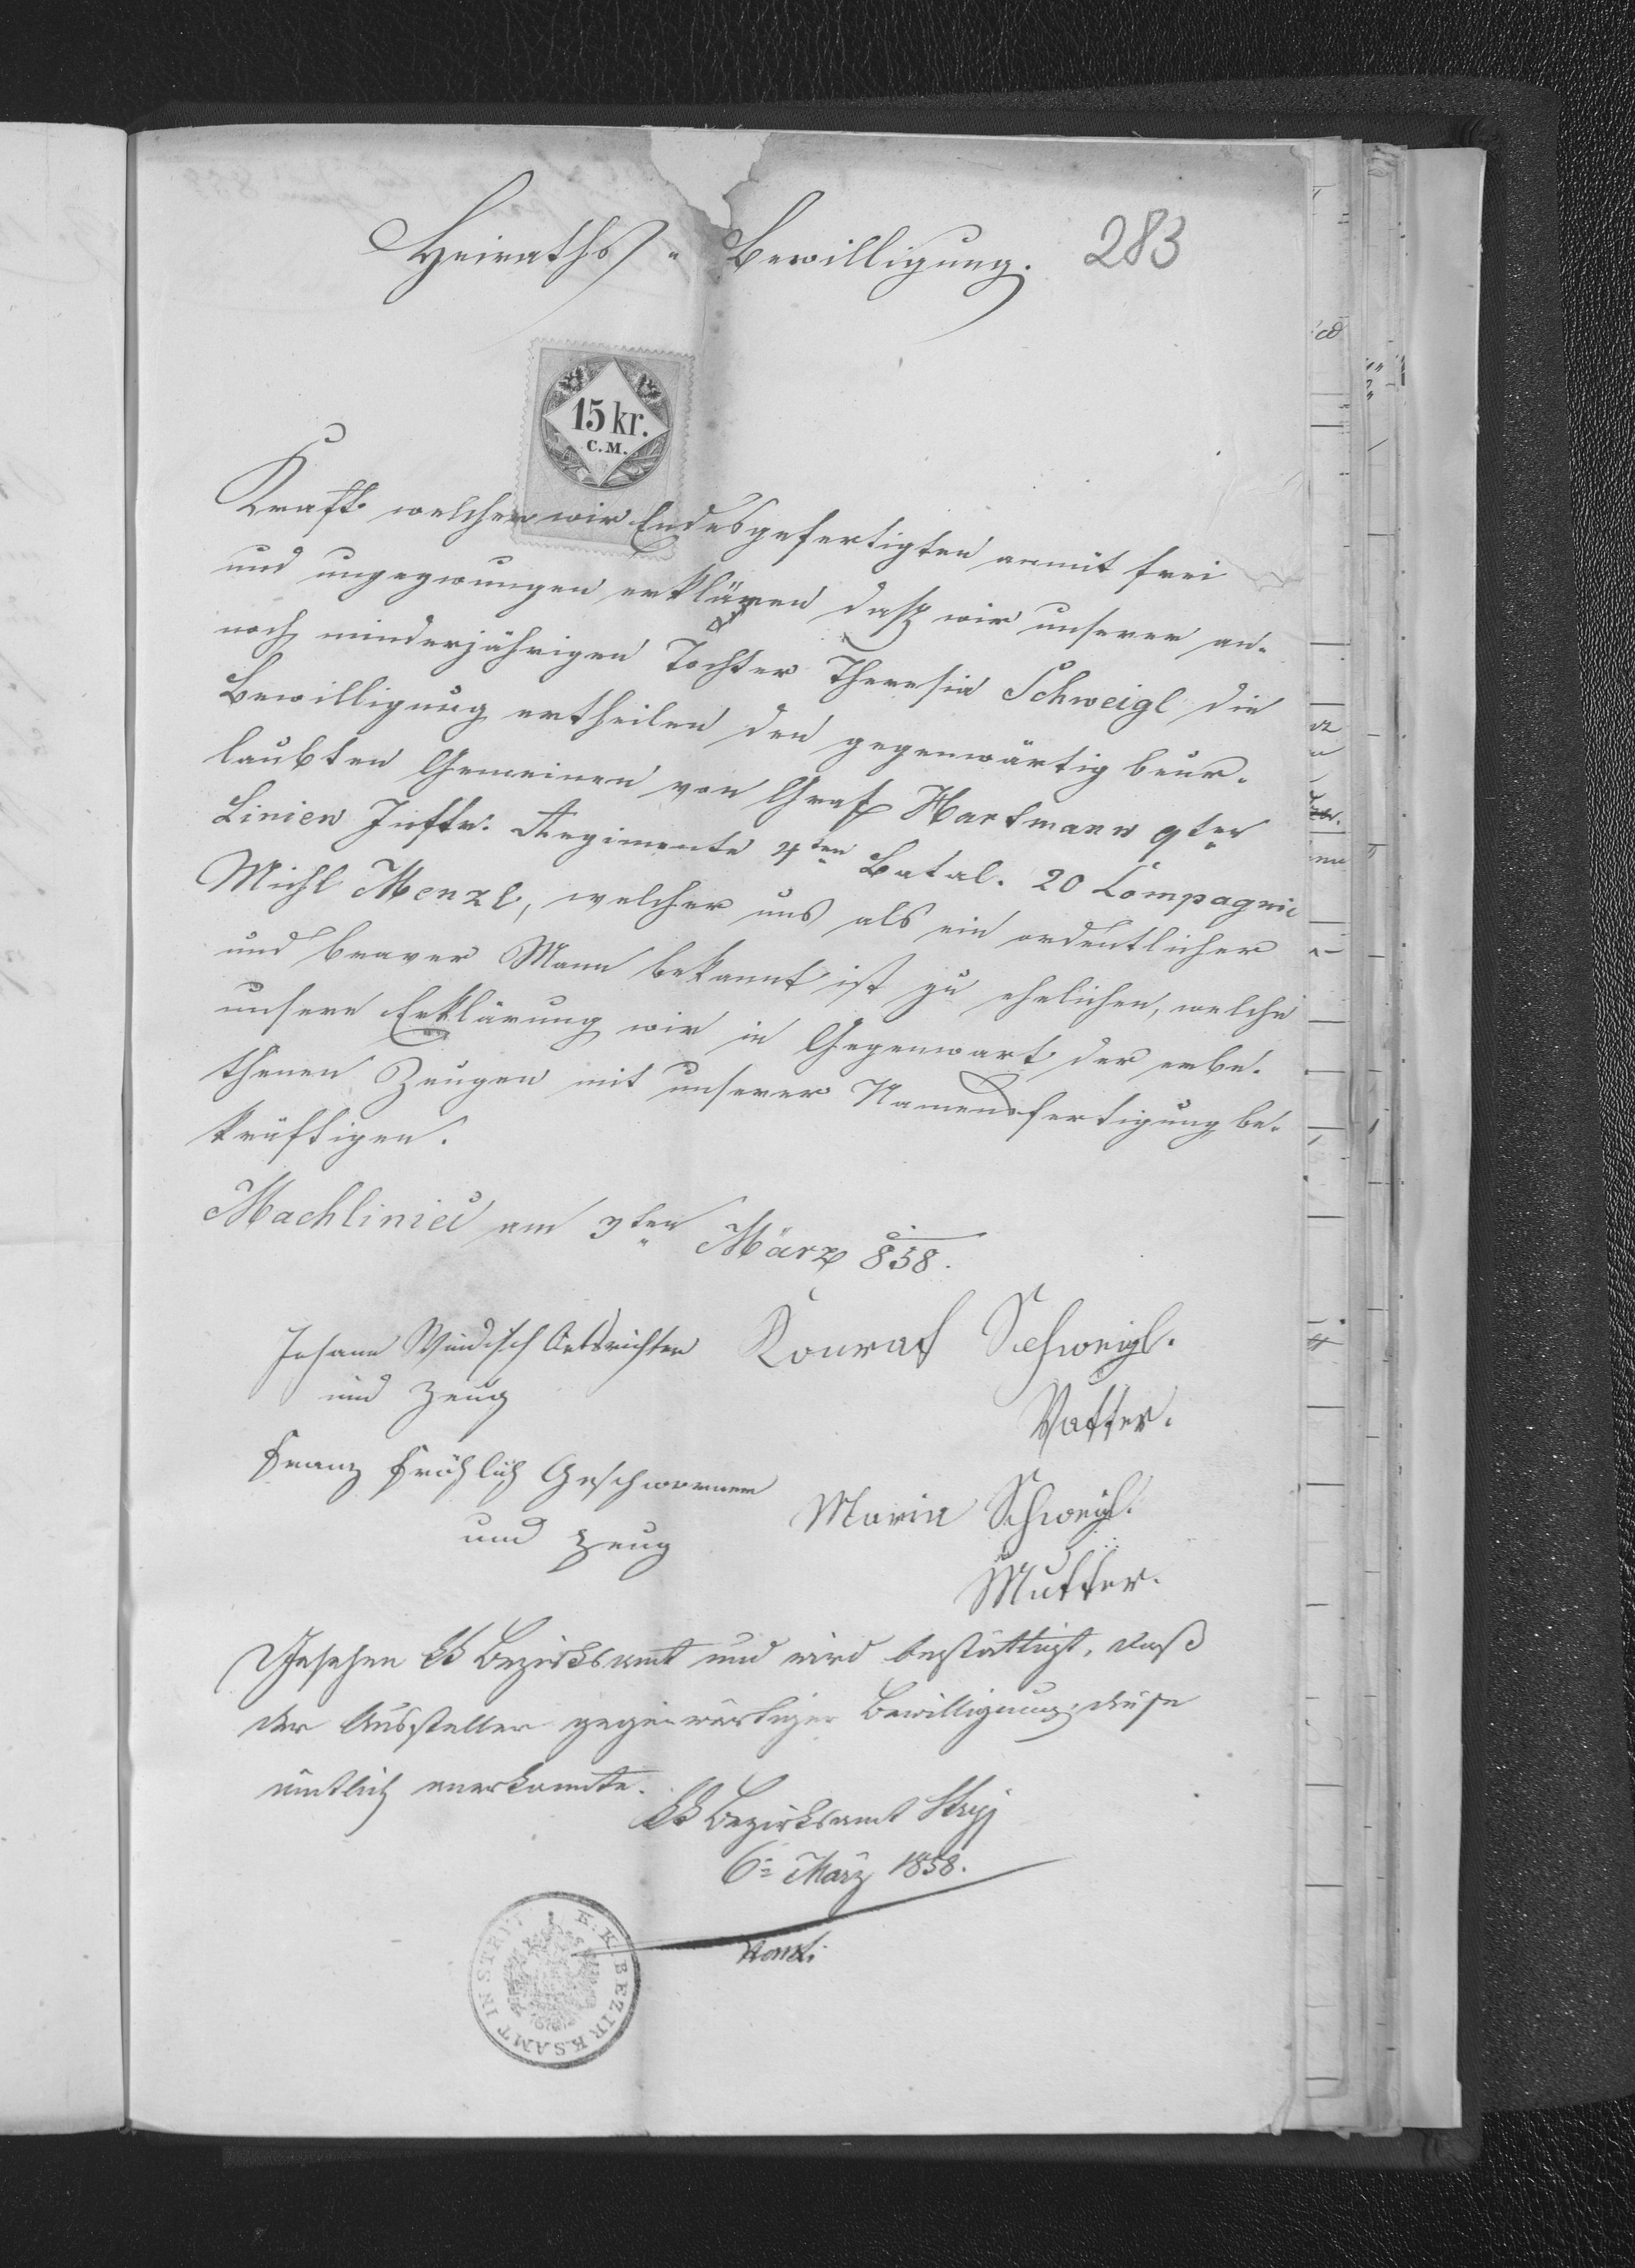 Heiraths - Bewilligung. 283
15 kr.
C.M.
Kraft welcher wir Endesgefertigten anmit frei
und ungezwungen erklären dass wir unserer an-
noch minderjährigen Tochter Theresia Schweigl die
Bewilligung ertheilen den gegenwärtig beur-
laubten Gemeinen von Graf Hartmann 9ten
Linien Inftr. Regimente 4ten Batal. 20 Compagnie
Michl Menzl, welcher uns als ein ordentlicher
und braver Mann bekannt ist zu ehelichen, welche
unsere Erklärung wir in Gegenwart der erbe-
thenen Zeugen mit unserer Namensfertigung be-
kräftigen.
Machliniec am 3ten März 858.
Johann Windisch Ortsrichter
und Zeug
Konrad Schweigl.
Vatter.
Franz Fröhlich Geschworner
und Zeug
Maria Schweigl.
Mutter.
Gesehen KK Bezirksamt und wird bestättigt, daß
der Aussteller gegenwärtiger Bewilligung diese
amtlich anerkannte.
KK Bezirksamt Stryj
6: März 1858.
K. K. BEZIRKSAMT IN STRYJ